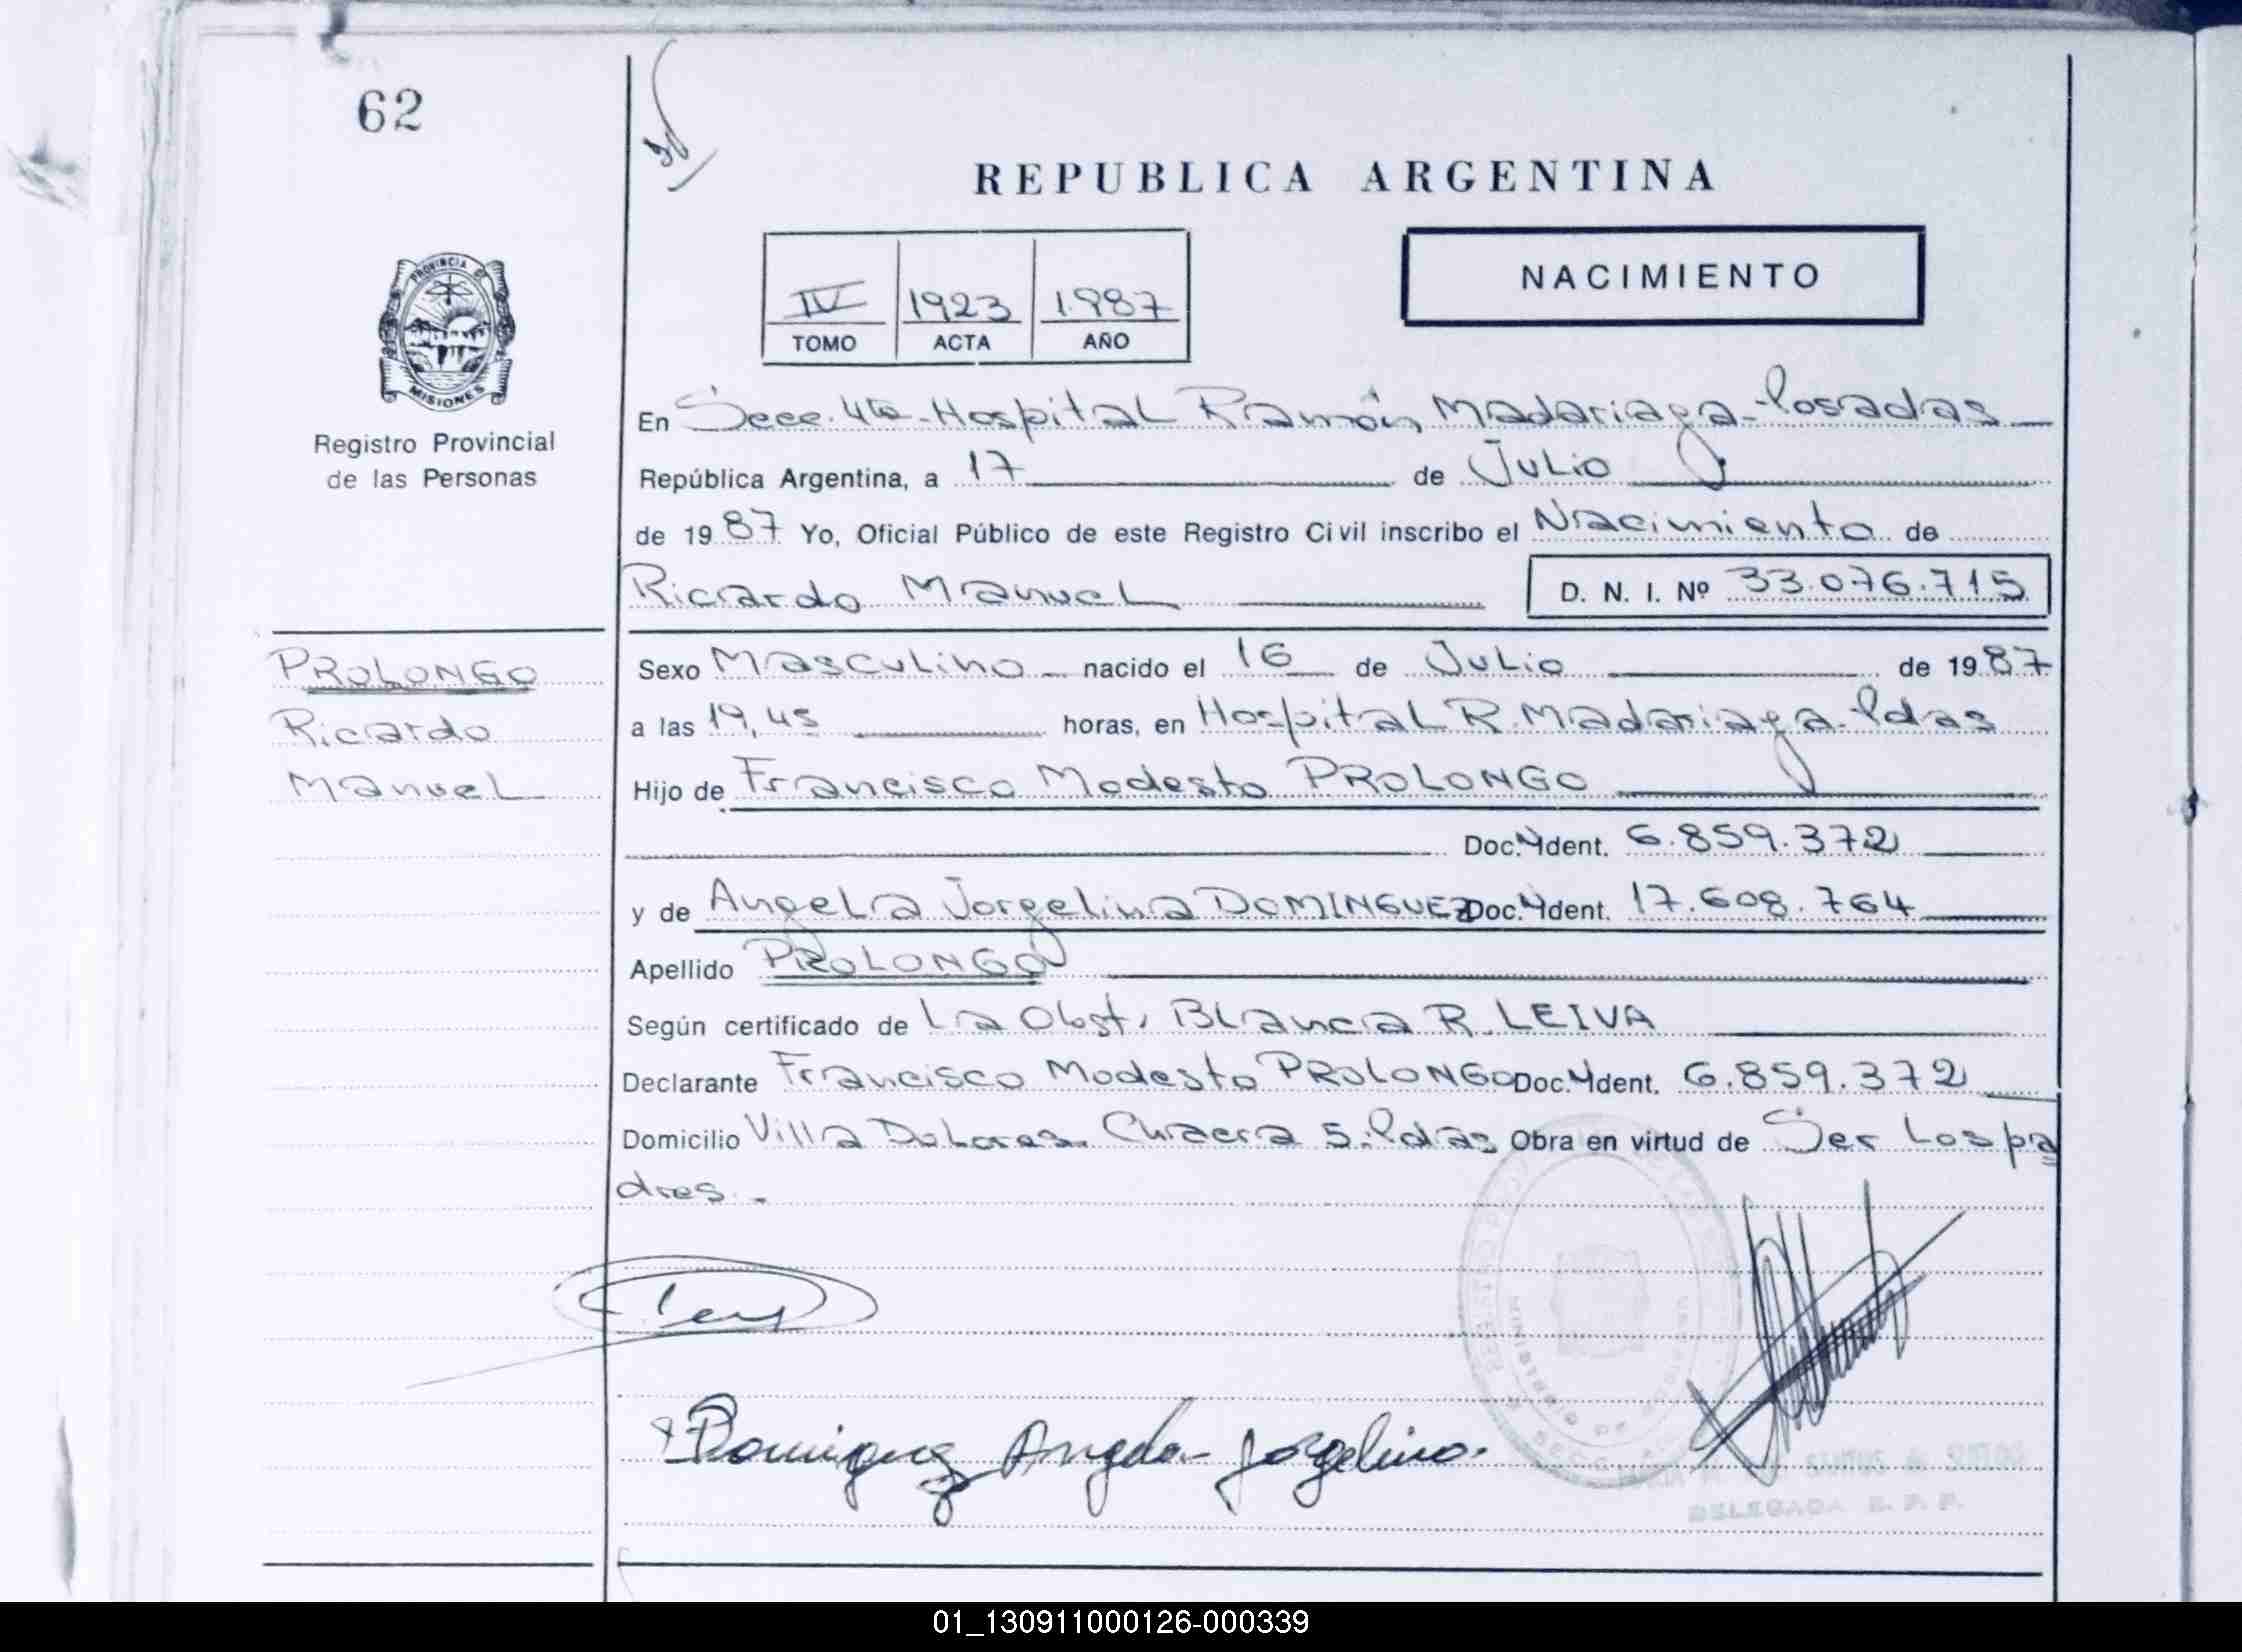 62
REPUBLICA ARGENTINA
IV 1923 1.987
TOMO ACTA AÑO
NACIMIENTO
PROVINCIA DE
MISIONES
Registro Provincial
de las Personas
En Secc. 4ta - Hospital Ramón Madariaga - Posadas
República Argentina, a 17 de Julio
de 1987 Yo, Oficial Público de este Registro Civil inscribo el Nacimiento de
Ricardo Manuel D. N. I. Nº 33.076.715
PROLONGO
Ricardo
Manuel
Sexo Masculino nacido el 16 de Julio de 1987
a las 19,45 horas, en Hospital R. Madariaga - Pdas
Hijo de Francisco Modesto PROLONGO
Doc. Ident. 6.859.372
y de Angela Jorgelina DOMINGUEZ Doc. Ident. 17.608.764
Apellido PROLONGO
Según certificado de La Obst. Blanca R. LEIVA
Declarante Francisco Modesto PROLONGO Doc. Ident. 6.859.372
Domicilio Villa Dolores. Chacra 5. Pdas Obra en virtud de Ser Los pa
dres.
Dominguez Angela Jorgelina.
SANTOS de
DELEGADA R. P. P.
01_130911000126-000339